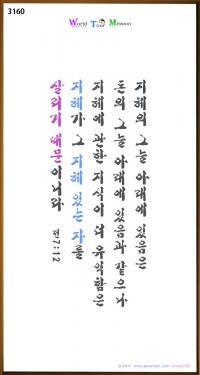 3160
World Tent Mission
지혜의 그늘 아래에 있음은
돈의 그늘 아래에 있음과 같으나
지혜에 관한 지식이 더 유익함은
지혜가 그 지혜 있는 자를
살리기 때문이니라
전7:12